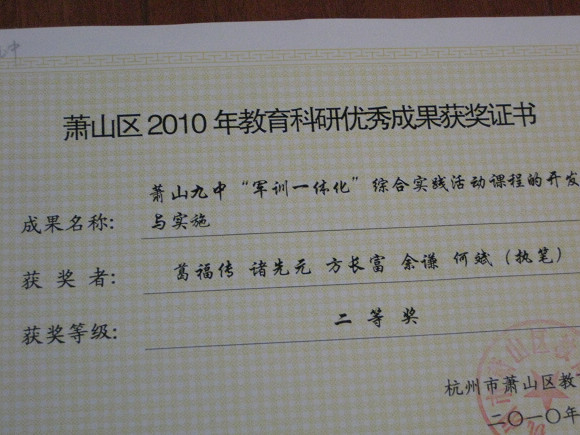 九中
萧山区2010年教育科研优秀成果获奖证书
萧山九中“军训一体化”综合实践活动课程的开发
成果名称: 与实施
获奖者: 葛福传 诸先元 方长富 余谦 何斌(执笔)
获奖等级: 二等奖
杭州市萧山区教
二〇一〇年